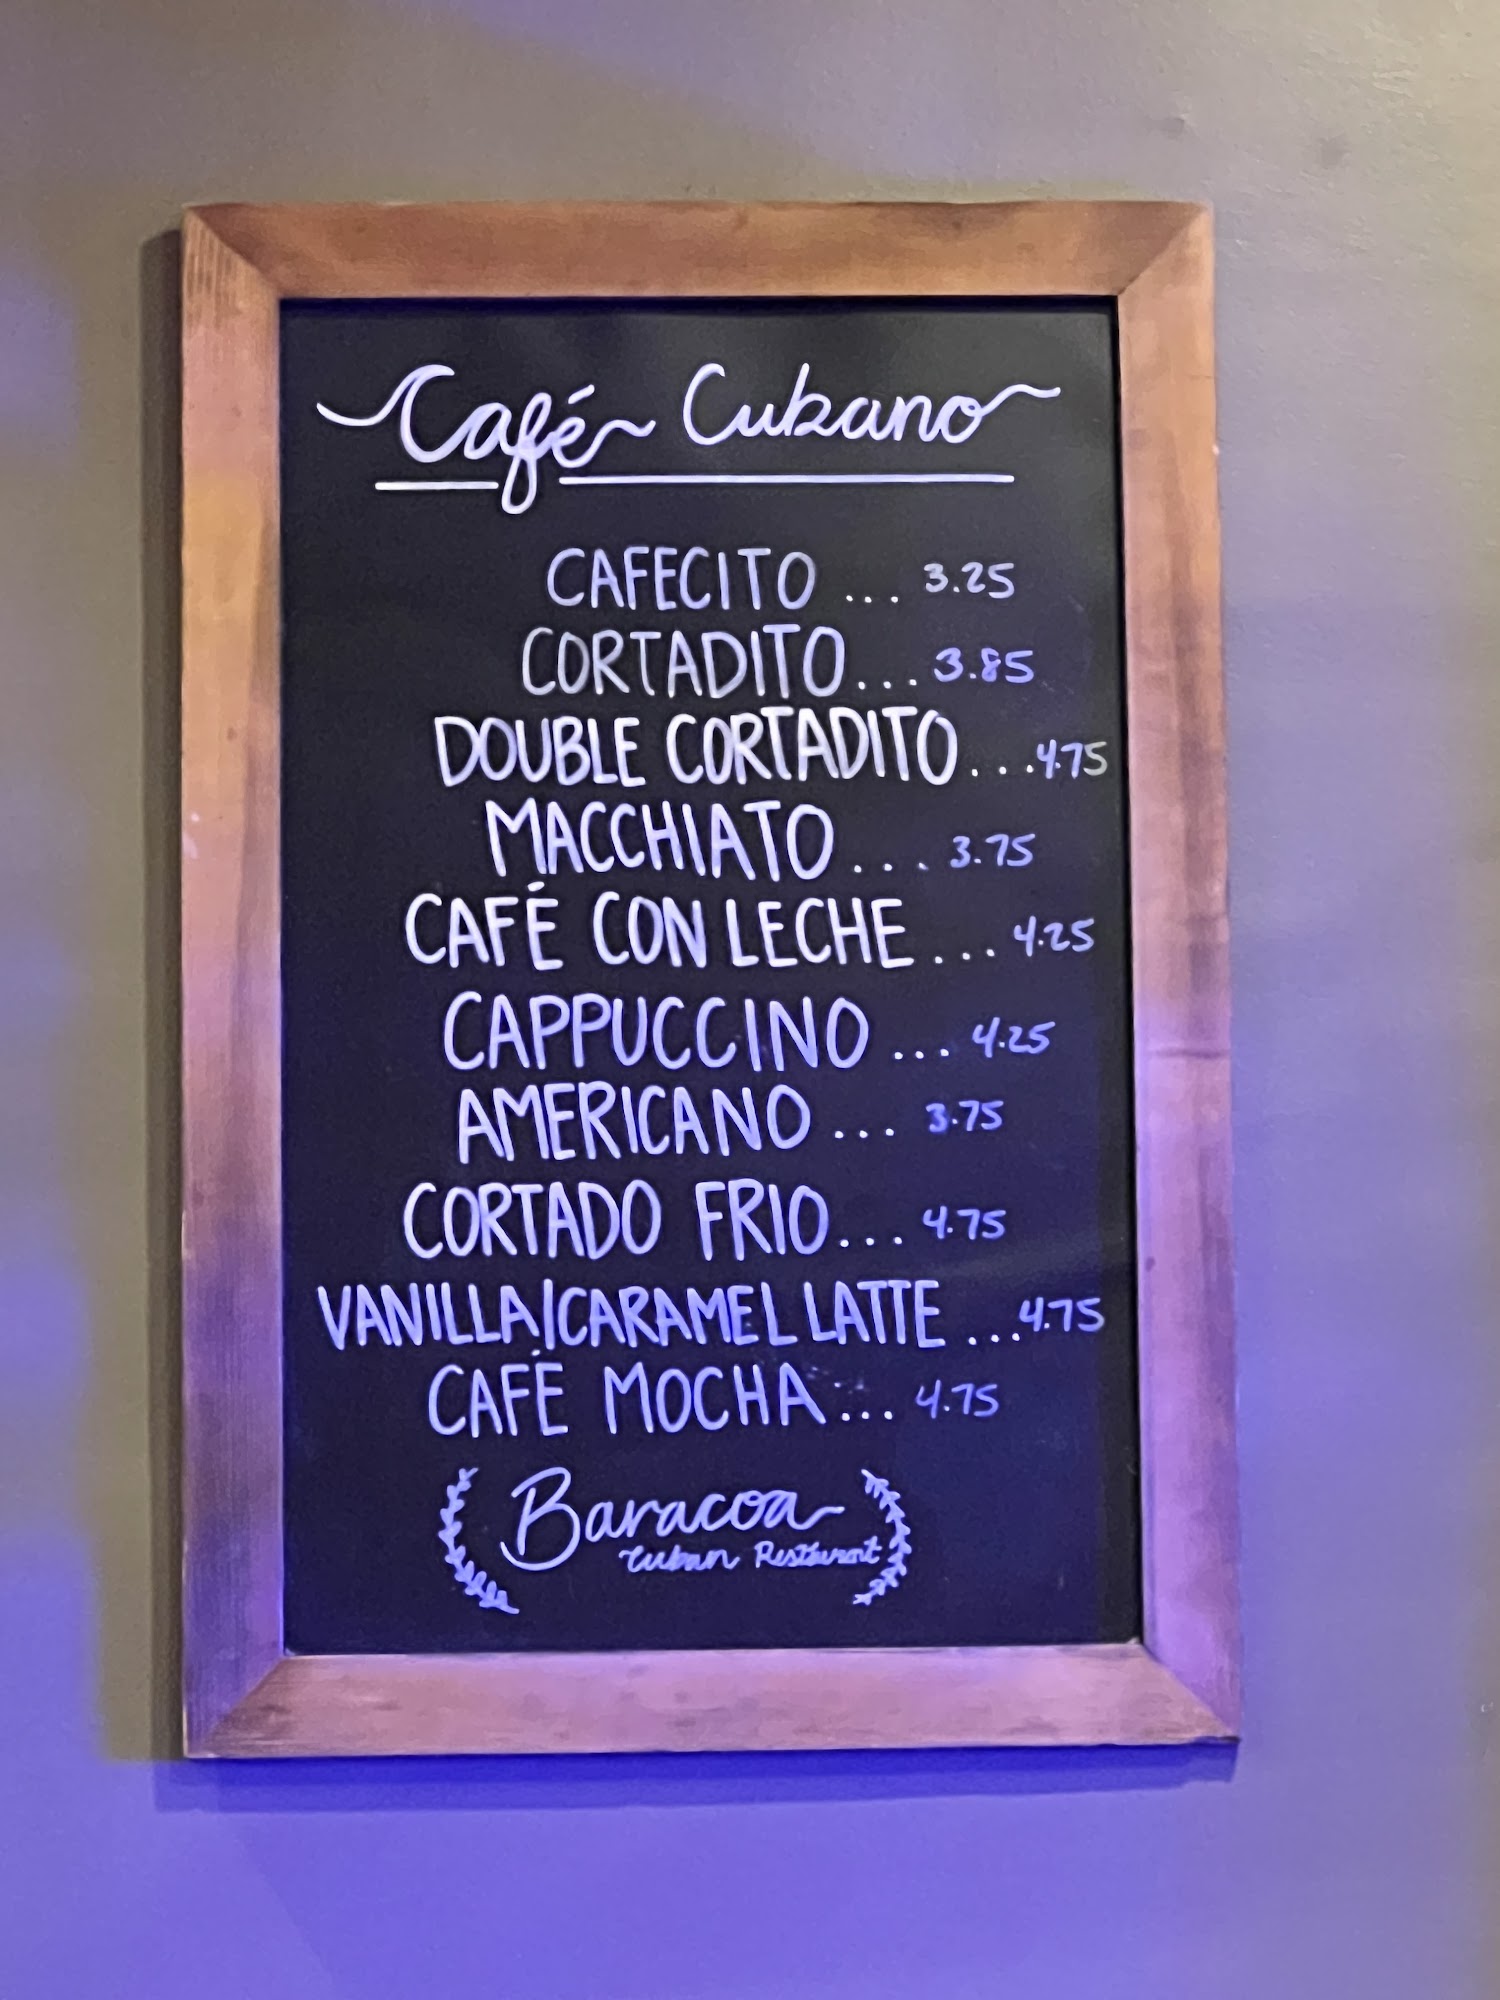 Café Cubano
CAFECITO ... 3.25
CORTADITO... 3.85
DOUBLE CORTADITO ...4.75
MACCHIATO ... 3.75
CAFÉ CON LECHE ... 4.25
CAPPUCCINO ... 4.25
AMERICANO ... 3.75
CORTADO FRIO... 4.75
VANILLA/CARAMEL LATTE ...4.75
CAFÉ MOCHA... 4.75
Baracoa
Cuban Restaurant